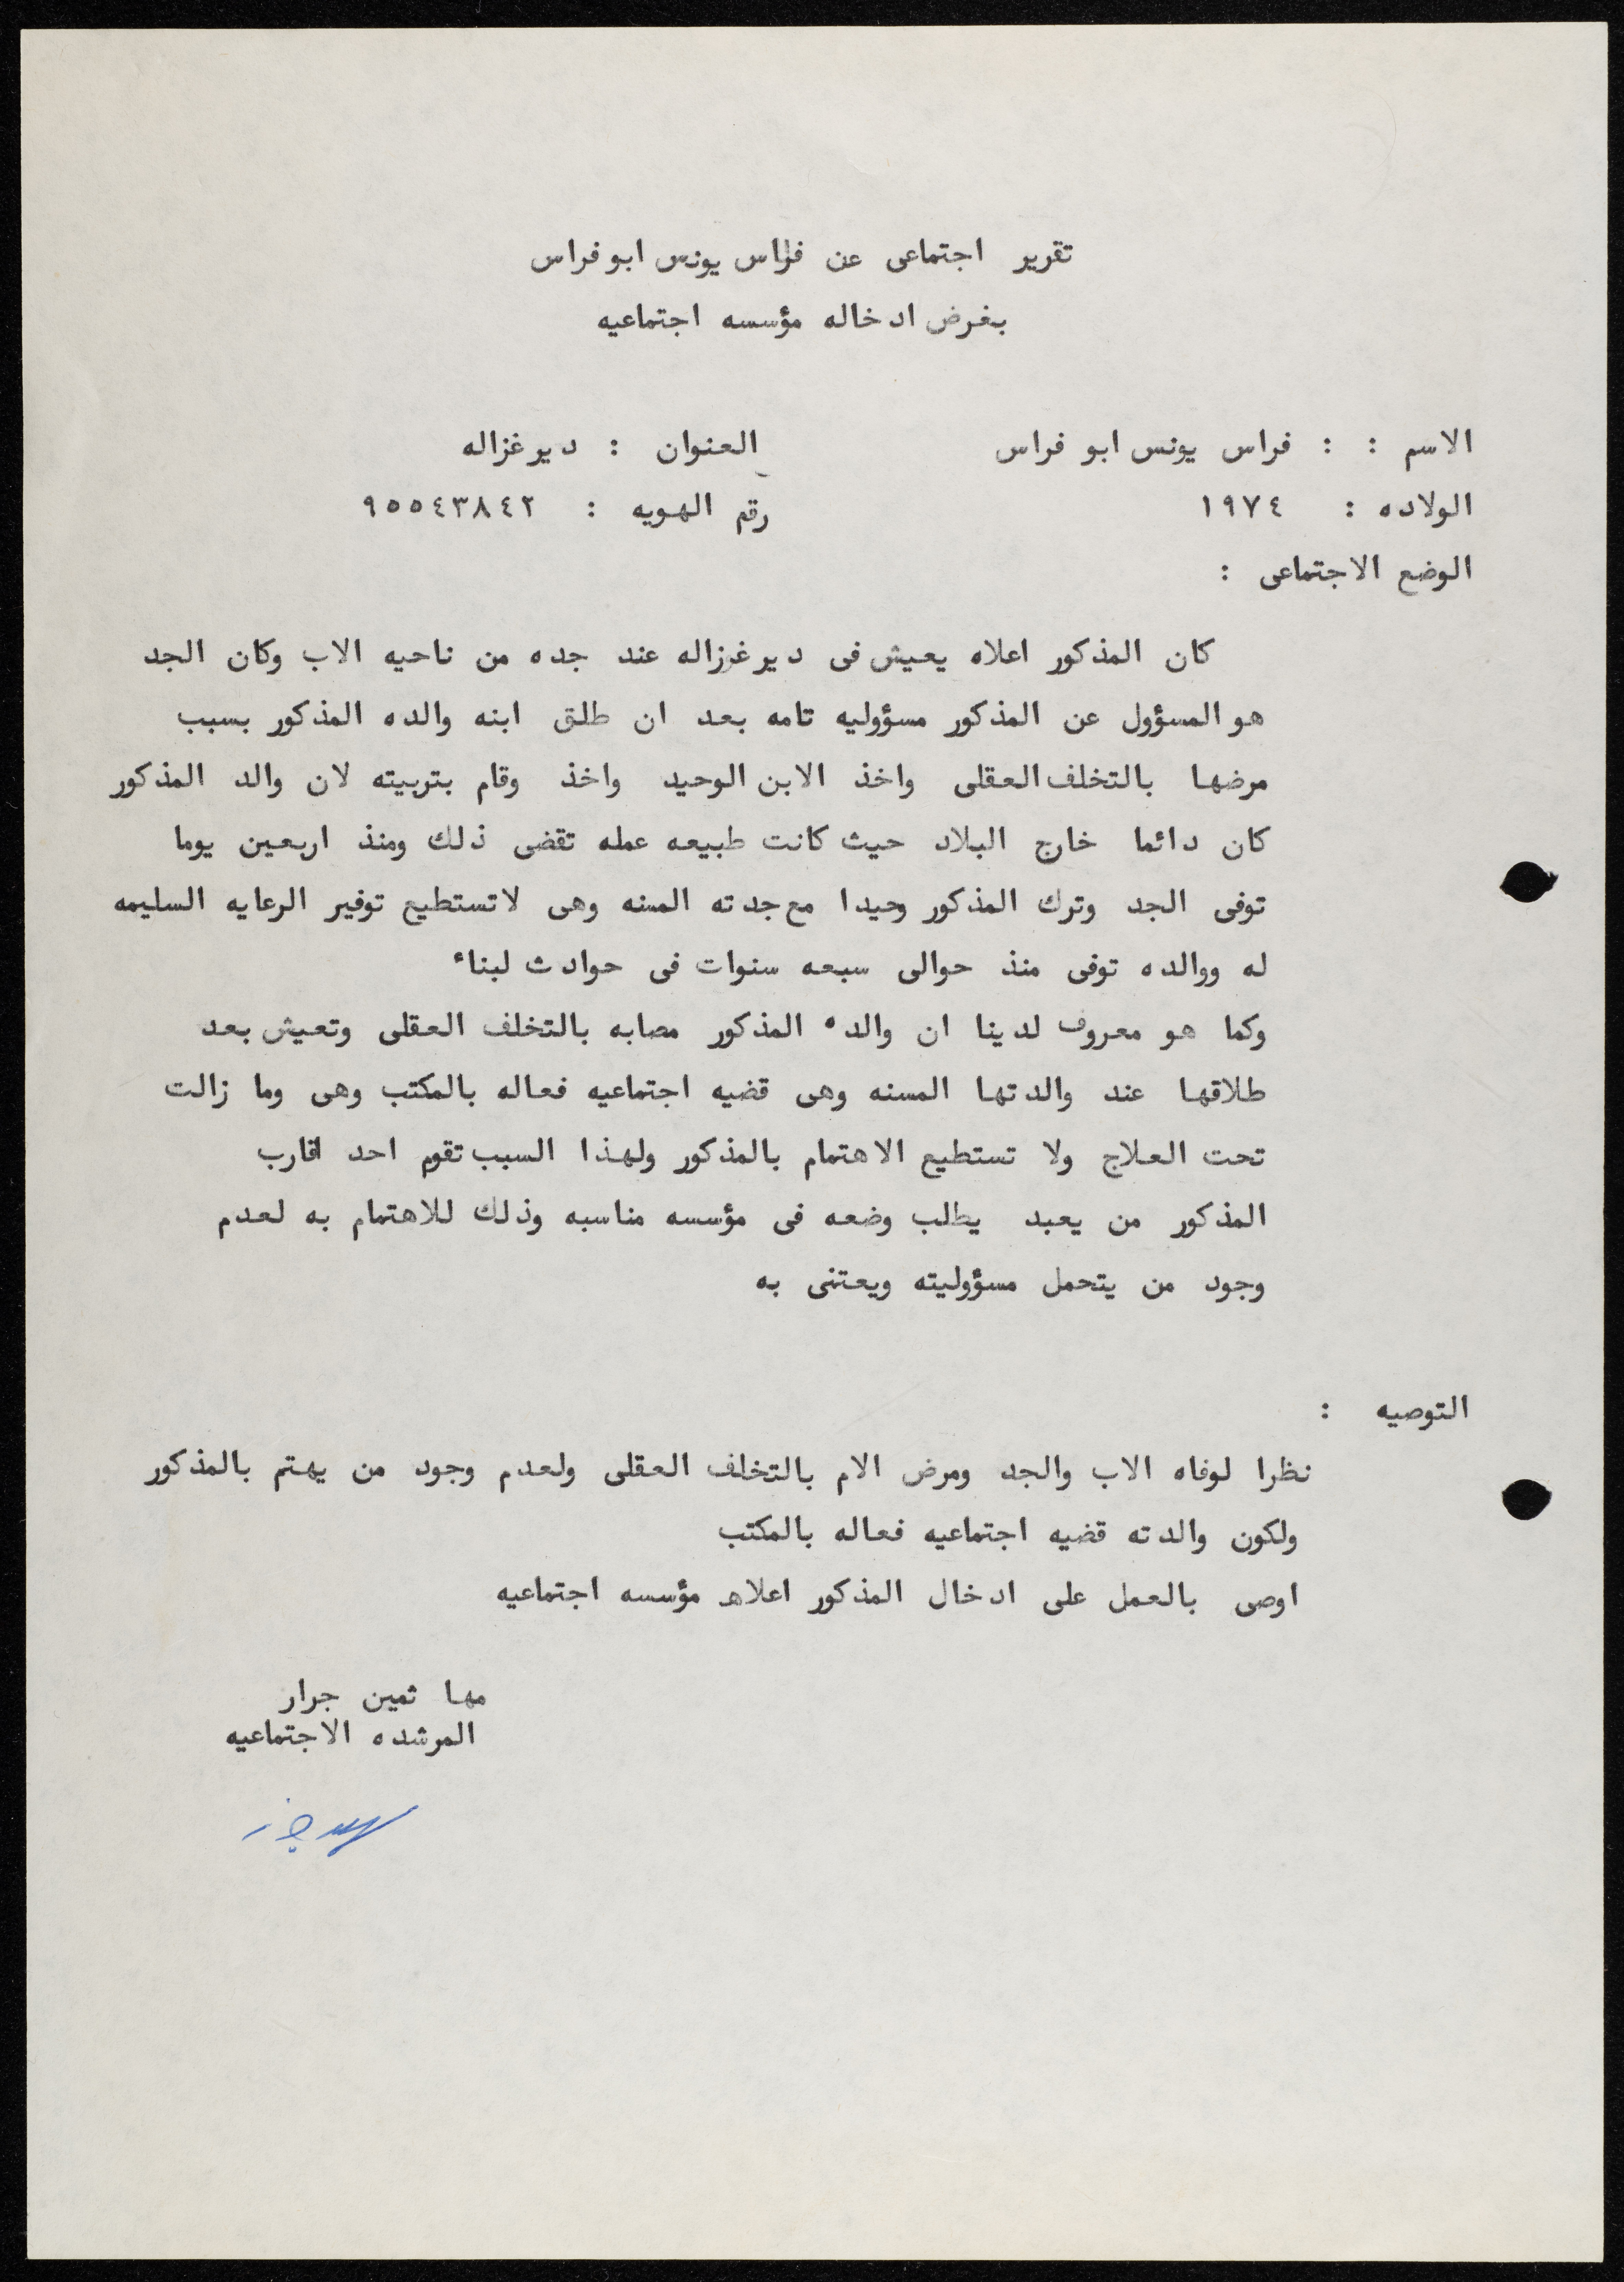 تقرير اجتماعى عن فراس يونس ابو فراس
بغرض ادخاله مؤسسه اجتماعيه
الاسم : : فراس يونس ابو فراس العنوان : دير غزاله
الولاده : ١٩٧٤ رقم الهويه : ٩٥٥٤٣٨٤٢
الوضع الاجتماعى :
كان المذكور اعلاه يعيش فى دير غزاله عند جده من ناحيه الاب وكان الجد
هو المسؤول عن المذكور مسؤوليه تامه بعد ان طلق ابنه والده المذكور بسبب
مرضها بالتخلف العقلى واخذ الابن الوحيد واخذ وقام بتربيته لان والد المذكور
كان دائما خارج البلاد حيث كانت طبيعه عمله تقضى ذلك ومنذ اربعين يوما
توفى الجد وترك المذكور وحيدا مع جدته المسنه وهى لاتستطيع توفير الرعايه السليمه
له ووالده توفى منذ حوالى سبعه سنوات فى حوادث لبناء
وكما هو معروف لدينا ان والده المذكور مصابه بالتخلف العقلى وتعيش بعد
طلاقها عند والدتها المسنه وهى قضيه اجتماعيه فعاله بالمكتب وهى وما زالت
تحت العلاج ولا تستطيع الاهتمام بالمذكور ولهذا السبب تقوم احد اقارب
المذكور من يعبد يطلب وضعه فى مؤسسه مناسبه وذلك للاهتمام به لعدم
وجود من يتحمل مسؤوليته ويعتنى به
التوصيه :
نظرا لوفاه الاب والجد ومرض الام بالتخلف العقلى ولعدم وجود من يهتم بالمذكور
ولكون والدته قضيه اجتماعيه فعاله بالمكتب
اوصى بالعمل على ادخال المذكور اعلاه مؤسسه اجتماعيه
مها ثمين جرار
المرشده الاجتماعيه